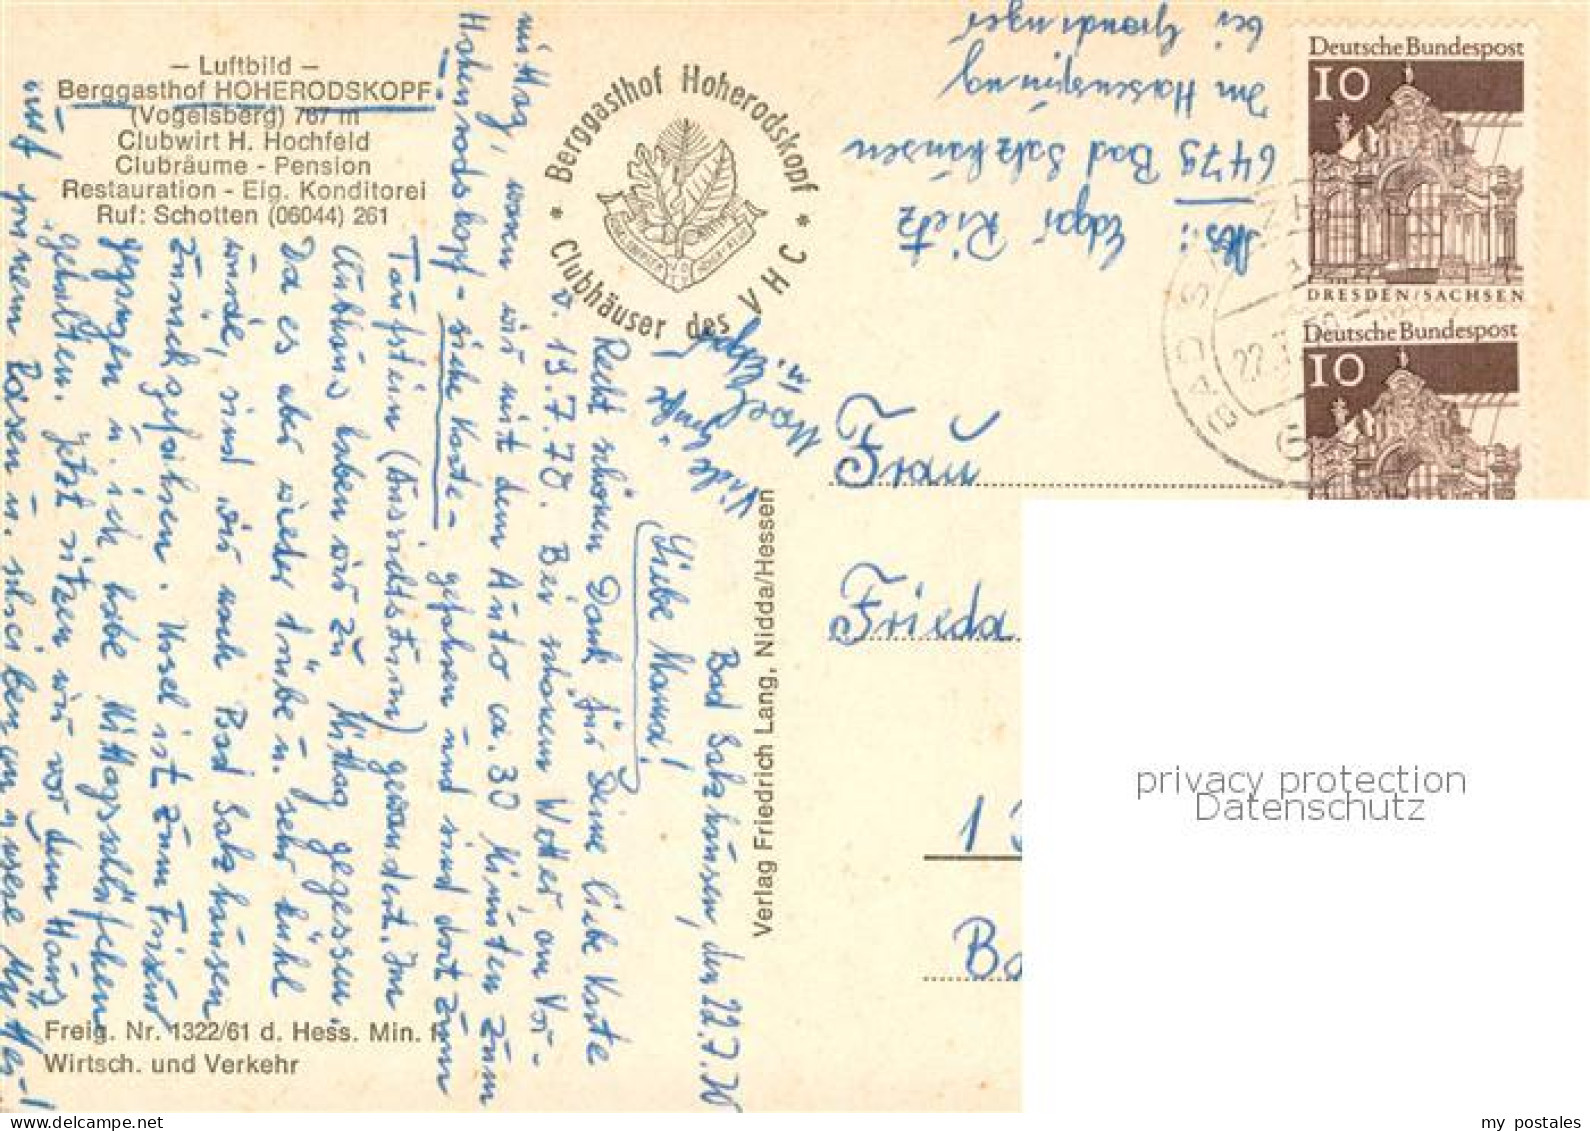 – Luftbild –
Berggasthof HOHERODSKOPF
(Vogelsberg) 767 m
Clubwirt H. Hochfeld
Clubräume - Pension
Restauration - Eig. Konditorei
Ruf: Schotten (06044) 261
* Berggasthof Hoherodskopf *
Clubhäuser des V H C
Abs.: Edgar Rietz
6479 Bad Salzhausen
Im Hasensprung
bei
Deutsche Bundespost
10
DRESDEN/SACHSEN
Deutsche Bundespost
10
Bad Salzhausen, den 22.7.70
Liebe Mama!
Recht schönen Dank für Deine liebe Karte
v. 19.7.70. Bei schönem Wetter am Vor-
mittag, waren wir mit dem Auto ca. 30 Minuten zum
Hoherodskopf - siehe Karte - gefahren und sind dort zum
Taufstein (Aussichtsturm) gewandert. Im
Anbau haben wir zu Mittag gegessen.
Da es aber wieder trübe u. sehr kühl
wurde, sind wir nach Bad Salzhausen
zurückgefahren. Ursel ist zum Frisör
gegangen u. ich habe Mittagsschläfchen
gehalten. Jetzt sitzen wir vor dem Haus
auf grünem Rasen u. schreiben an unsere Mutter!
Viele Grüße
Frau
Frieda
1
Ba
Verlag Friedrich Lang, Nidda/Hessen
Freig. Nr. 1322/61 d. Hess. Min. f.
Wirtsch. und Verkehr
privacy protection
Datenschutz
my postales